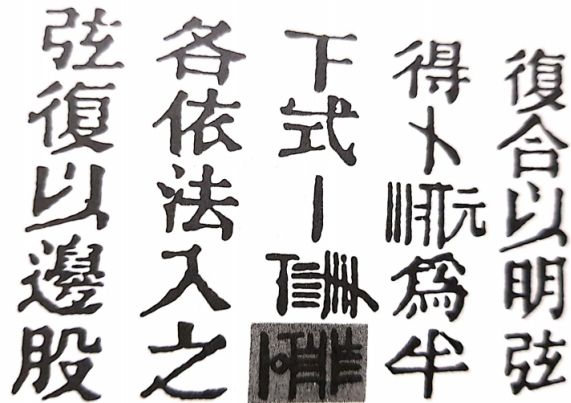 復合以明弦
得元為半
下式
各依法入之
弦復以邊股